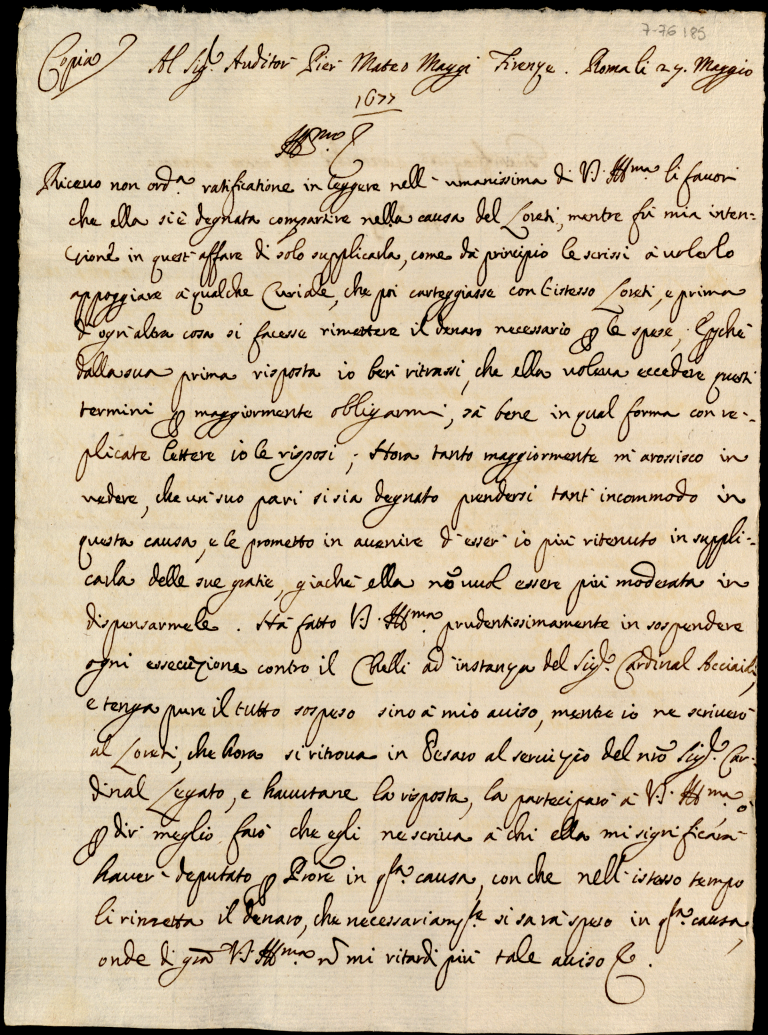 7-76 185
Copia Al Sig.r Auditor Pier Matteo Maggi Firenze. Roma li 29. Maggio
1677
Ill.mo &
Ricevo non ord.a ratificatione in leggere nell'umanissima di V.S. Ill.ma li favori
che ella si è degnata compartire nella causa del Loreti, mentre fù mia inten=
zione in quest'affare di solo supplicarla, come dà principio le scrissi à volerlo
appoggiare à qualche Curiale, che poi carteggiasse con l'istesso Loreti, e prima
d'ogn'altra cosa si facesse rimettere il denaro necessario p le spese; E pche
dalla sua prima risposta io ben ritrassi, che ella voleva eccedere questi
termini p maggiormente obligarmi, sà bene in qual forma con re=
plicate lettere io le risposi; Hora tanto maggiormente m'arossisco in
vedere, che un suo pari si sia degnato prendersi tant'incommodo in
questa causa, e le prometto in avvenire d'esser'io più ritenuto in suppli=
carla delle sue gratie, giache ella nõ vuol essere più moderata in
dispensarmele. Hà fatto V.S. Ill.ma prudentissimamente in sospendere
ogni essecuzione contro il Chelli ad instanza del Sig.r Cardinal Acciaioli,
e tenga pure il tutto sospeso sino à mio aviso, mentre io ne scriverò
al Loreti, che hora si ritrova in Pesaro al servizio del nro Sig.r Car=
dinal Legato, e havutane la risposta, la participarò à V.S. Ill.ma, ò
p dir meglio farò che egli ne scriva à chi ella mi significarà
haver deputato p Prore in qsta causa, con che nell'istesso tempo
li rimetta il denaro, che necessariamte si sarà speso in qsta causa,
onde di gra V.S. Ill.ma nõ mi ritardi più tale aviso &.